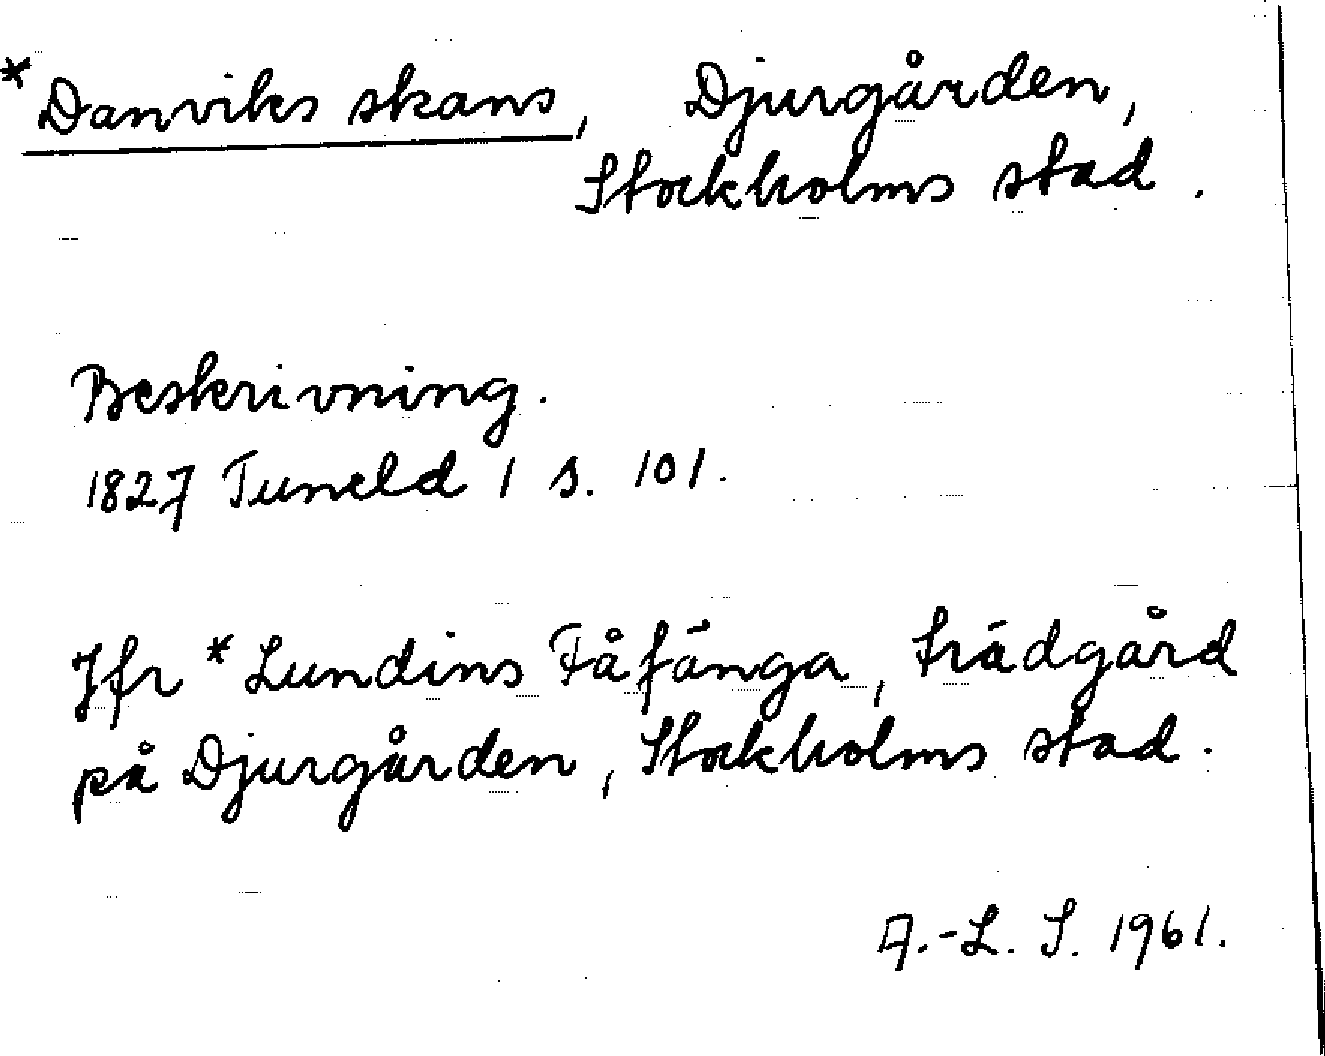 *Danviks skans, Djurgården,
Stockholms stad.
Beskrivning.
1827 Tuneld 1 s. 101.
Jfr *Lundins Fåfänga, trädgård
på Djurgården, Stockholms stad.
A.-L. S. 1961.